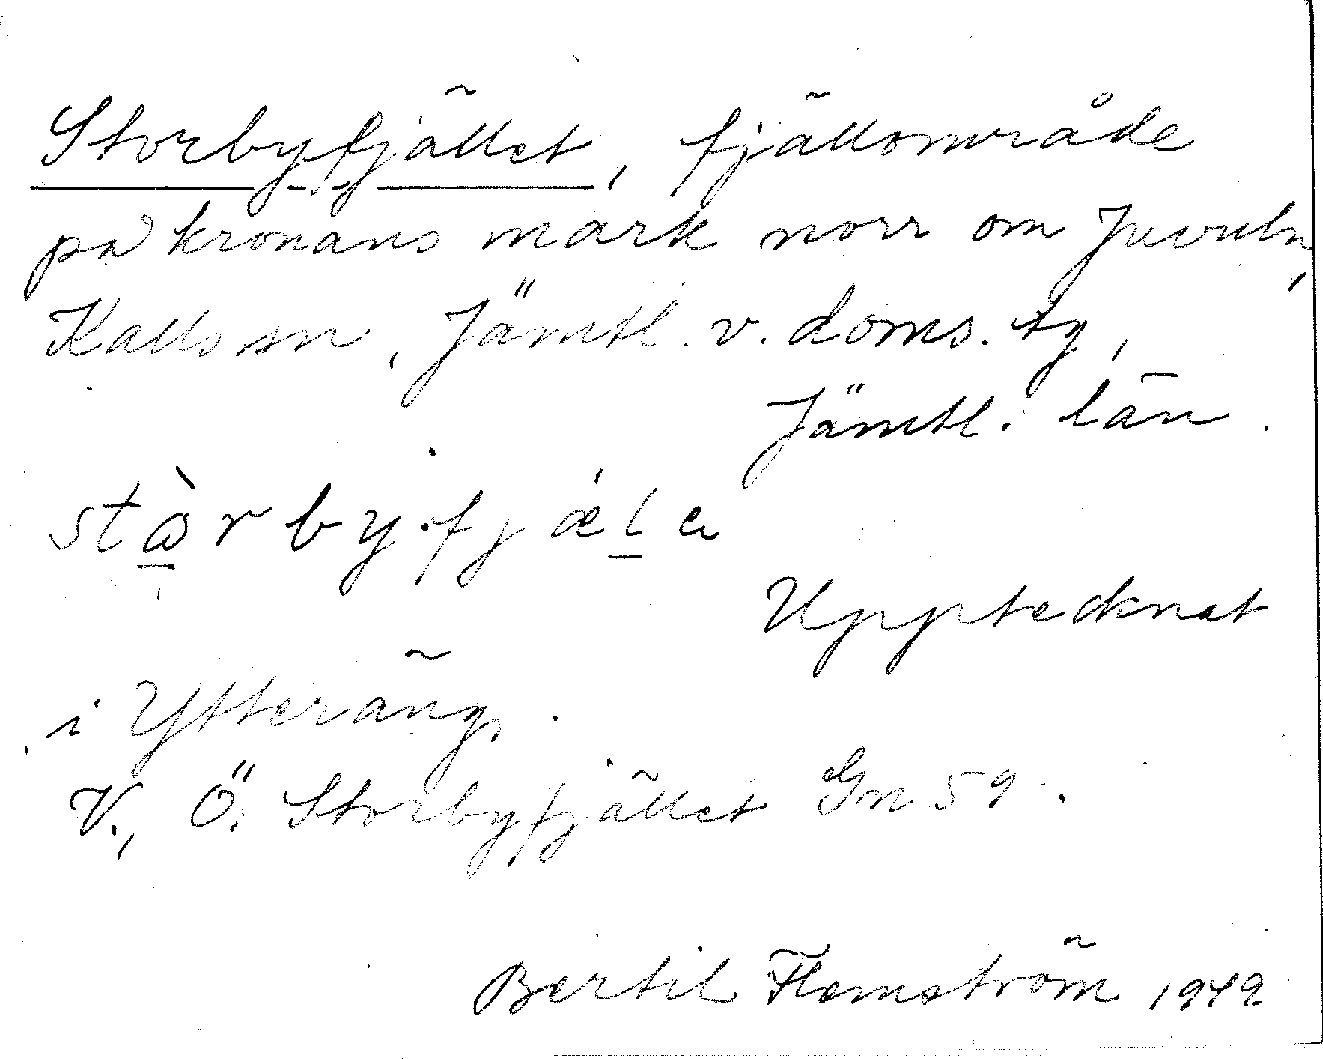 Storbyfjället, fjällområde
på kronans mark norr om Juvuln,
Kalls sn, Jämtl. v. doms. tg,
Jämtl. län.
stɷ̀rbyfjǽla
Upptecknat
i Ytteräng.
V., Ö. Storbyfjället Gn 59.
Bertil Flemström 1942